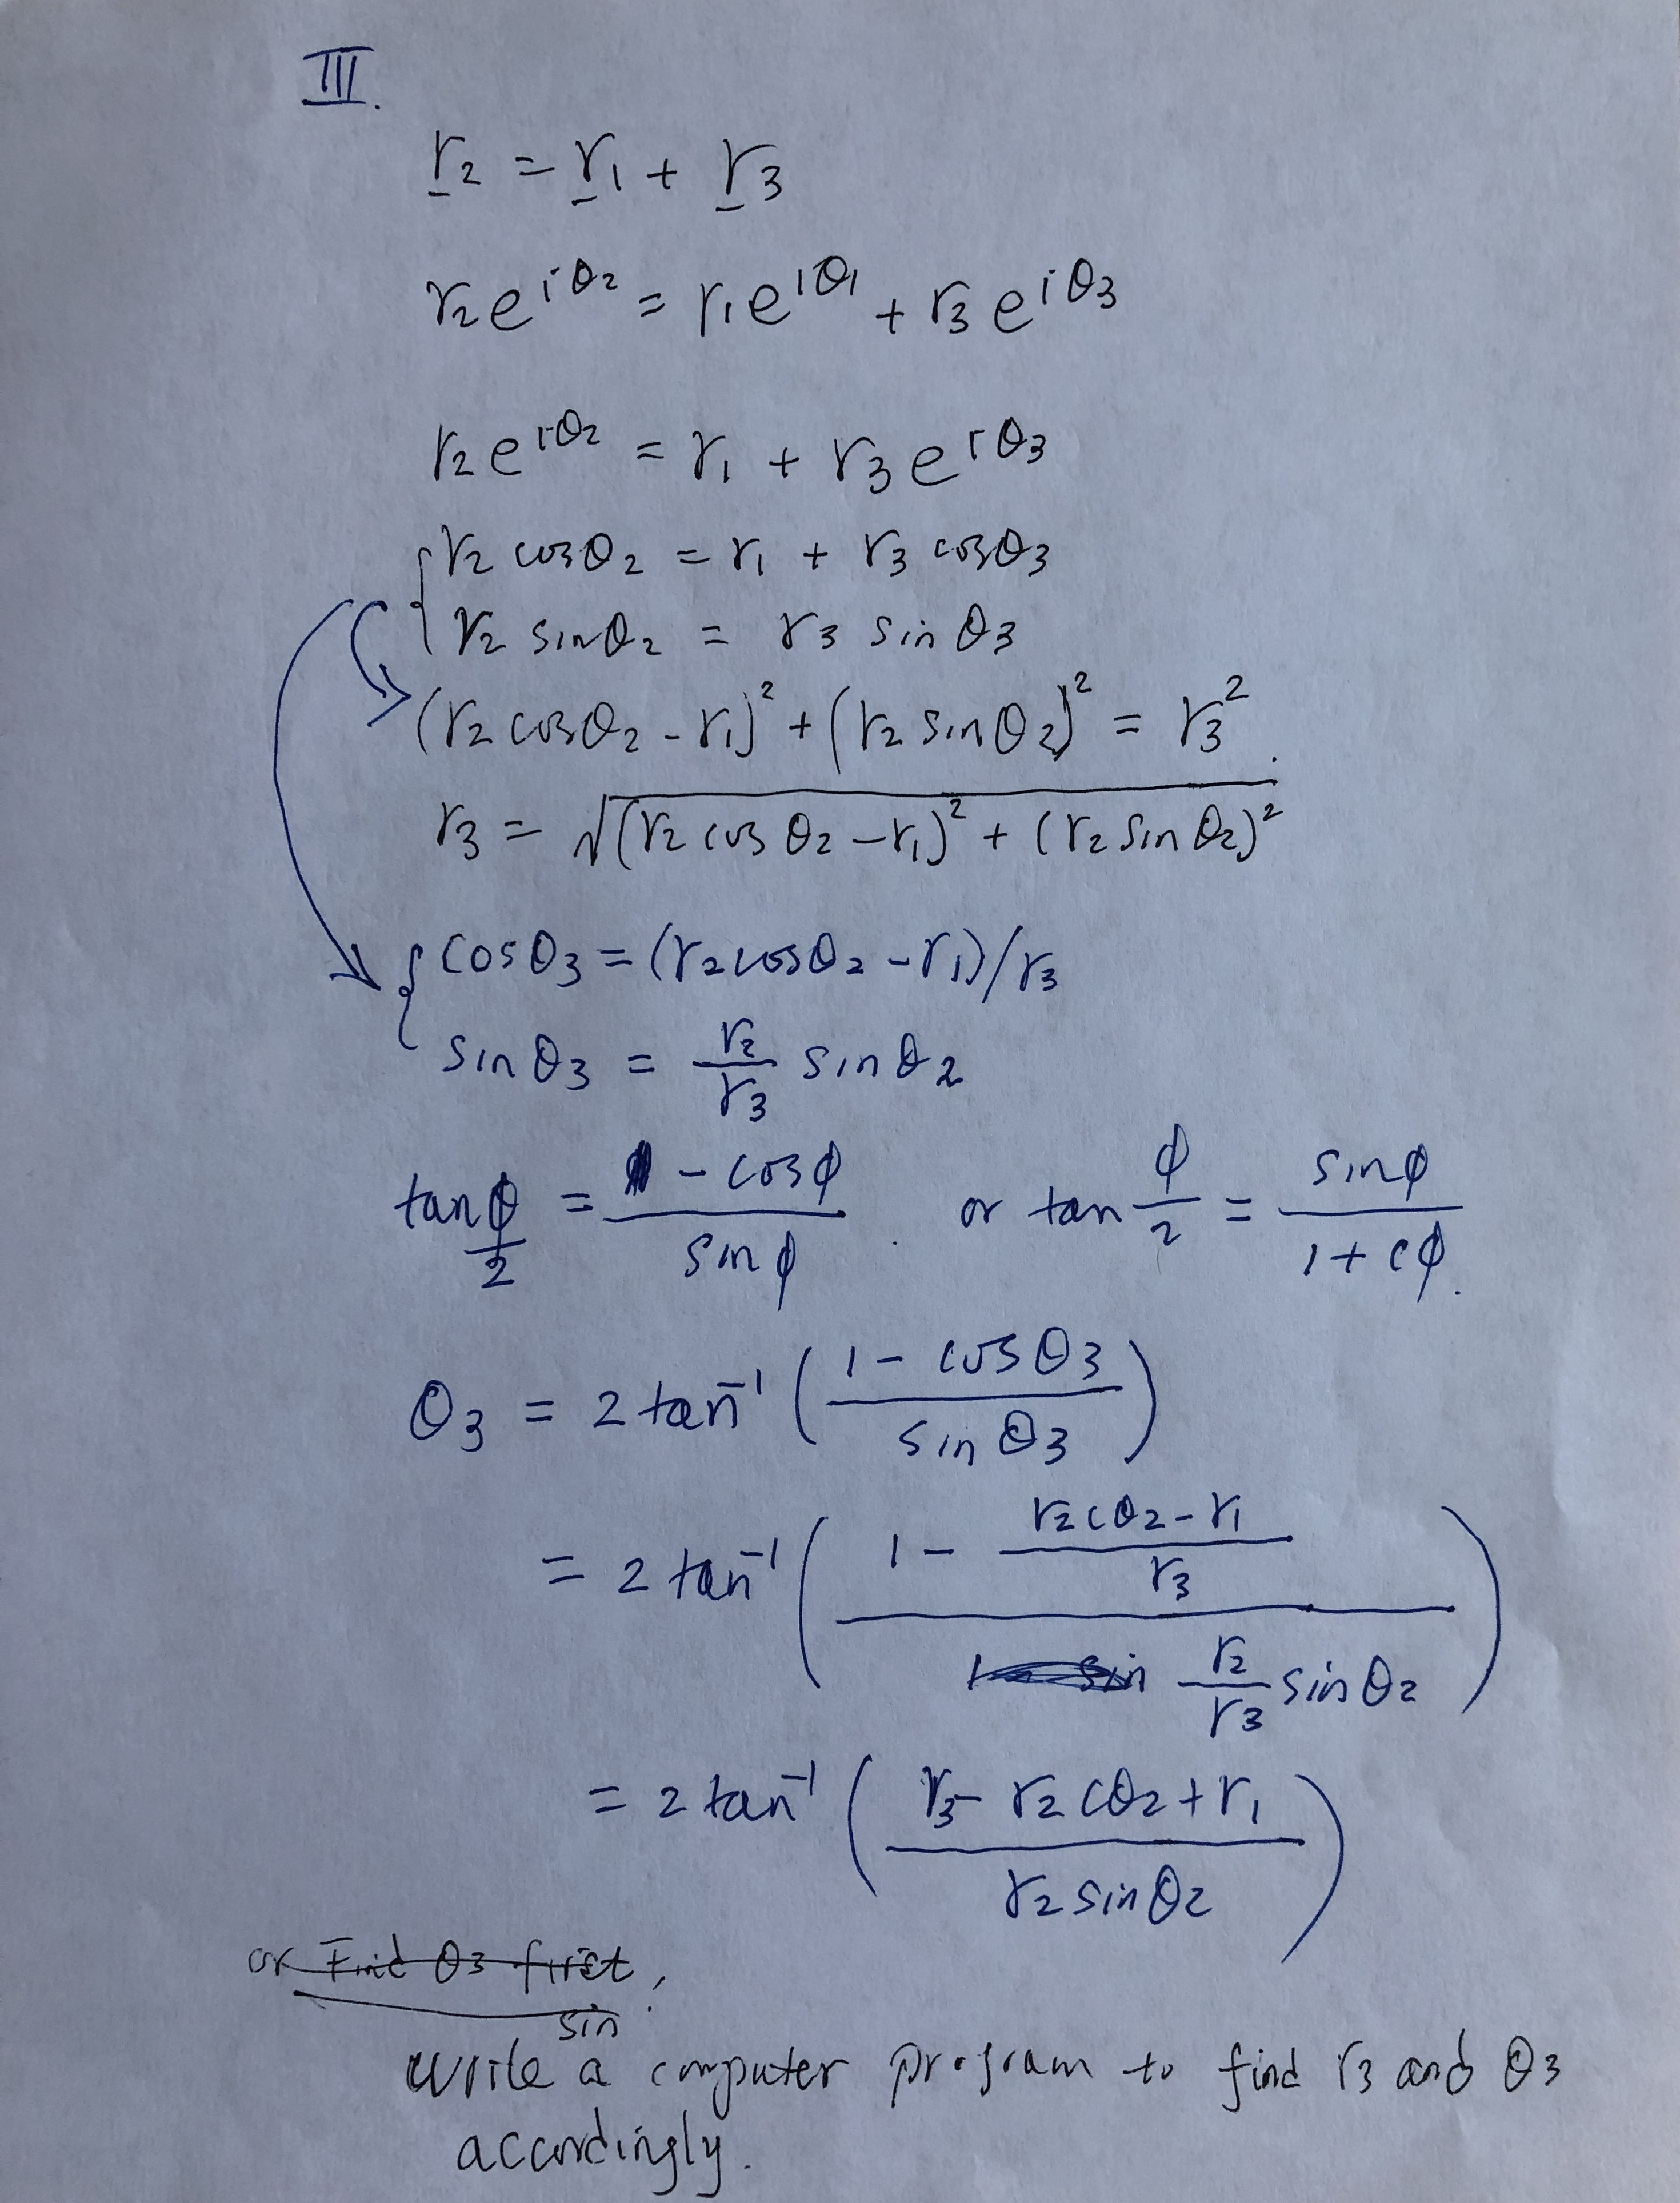 III.
r2 = r1 + r3
r2 e^iθ2 = r1 e^iθ1 + r3 e^iθ3
r2 e^iθ2 = r1 + r3 e^iθ3
{ r2 cosθ2 = r1 + r3 cosθ3
r2 sinθ2 = r3 sinθ3
(r2 cosθ2 - r1)² + (r2 sinθ2)² = r3².
r3 = √((r2 cosθ2 - r1)² + (r2 sinθ2)²)
{ cosθ3 = (r2 cosθ2 - r1)/r3
sinθ3 = r2/r3 sinθ2
tan ϕ/2 = (1 - cosϕ)/(sinϕ). or tan ϕ/2 = sinϕ/(1 + cϕ).
θ3 = 2 tan⁻¹ ((1 - cosθ3)/(sinθ3))
= 2 tan⁻¹ ((1 - (r2 cθ2 - r1)/r3)/(r2/r3 sinθ2))
= 2 tan⁻¹ ((r3 - r2 cθ2 + r1)/(r2 sinθ2))
or Find θ3 first,
sin
write a computer program to find r3 and θ3
accordingly.